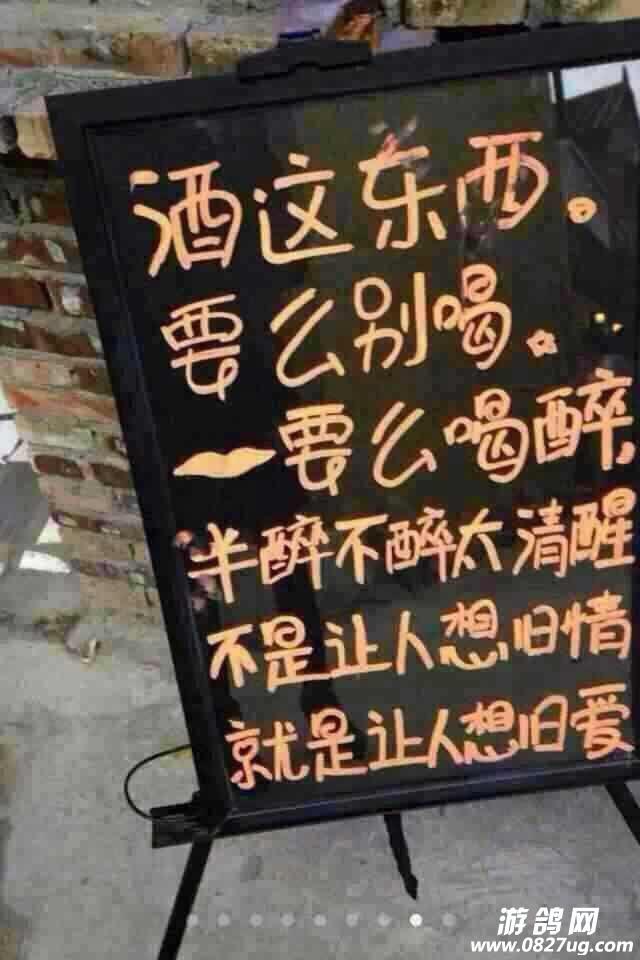 酒这东西。
要么别喝。
一要么喝醉,
半醉不醉太清醒
不是让人想旧情
就是让人想旧爱
游鸽网
www.0827ug.com